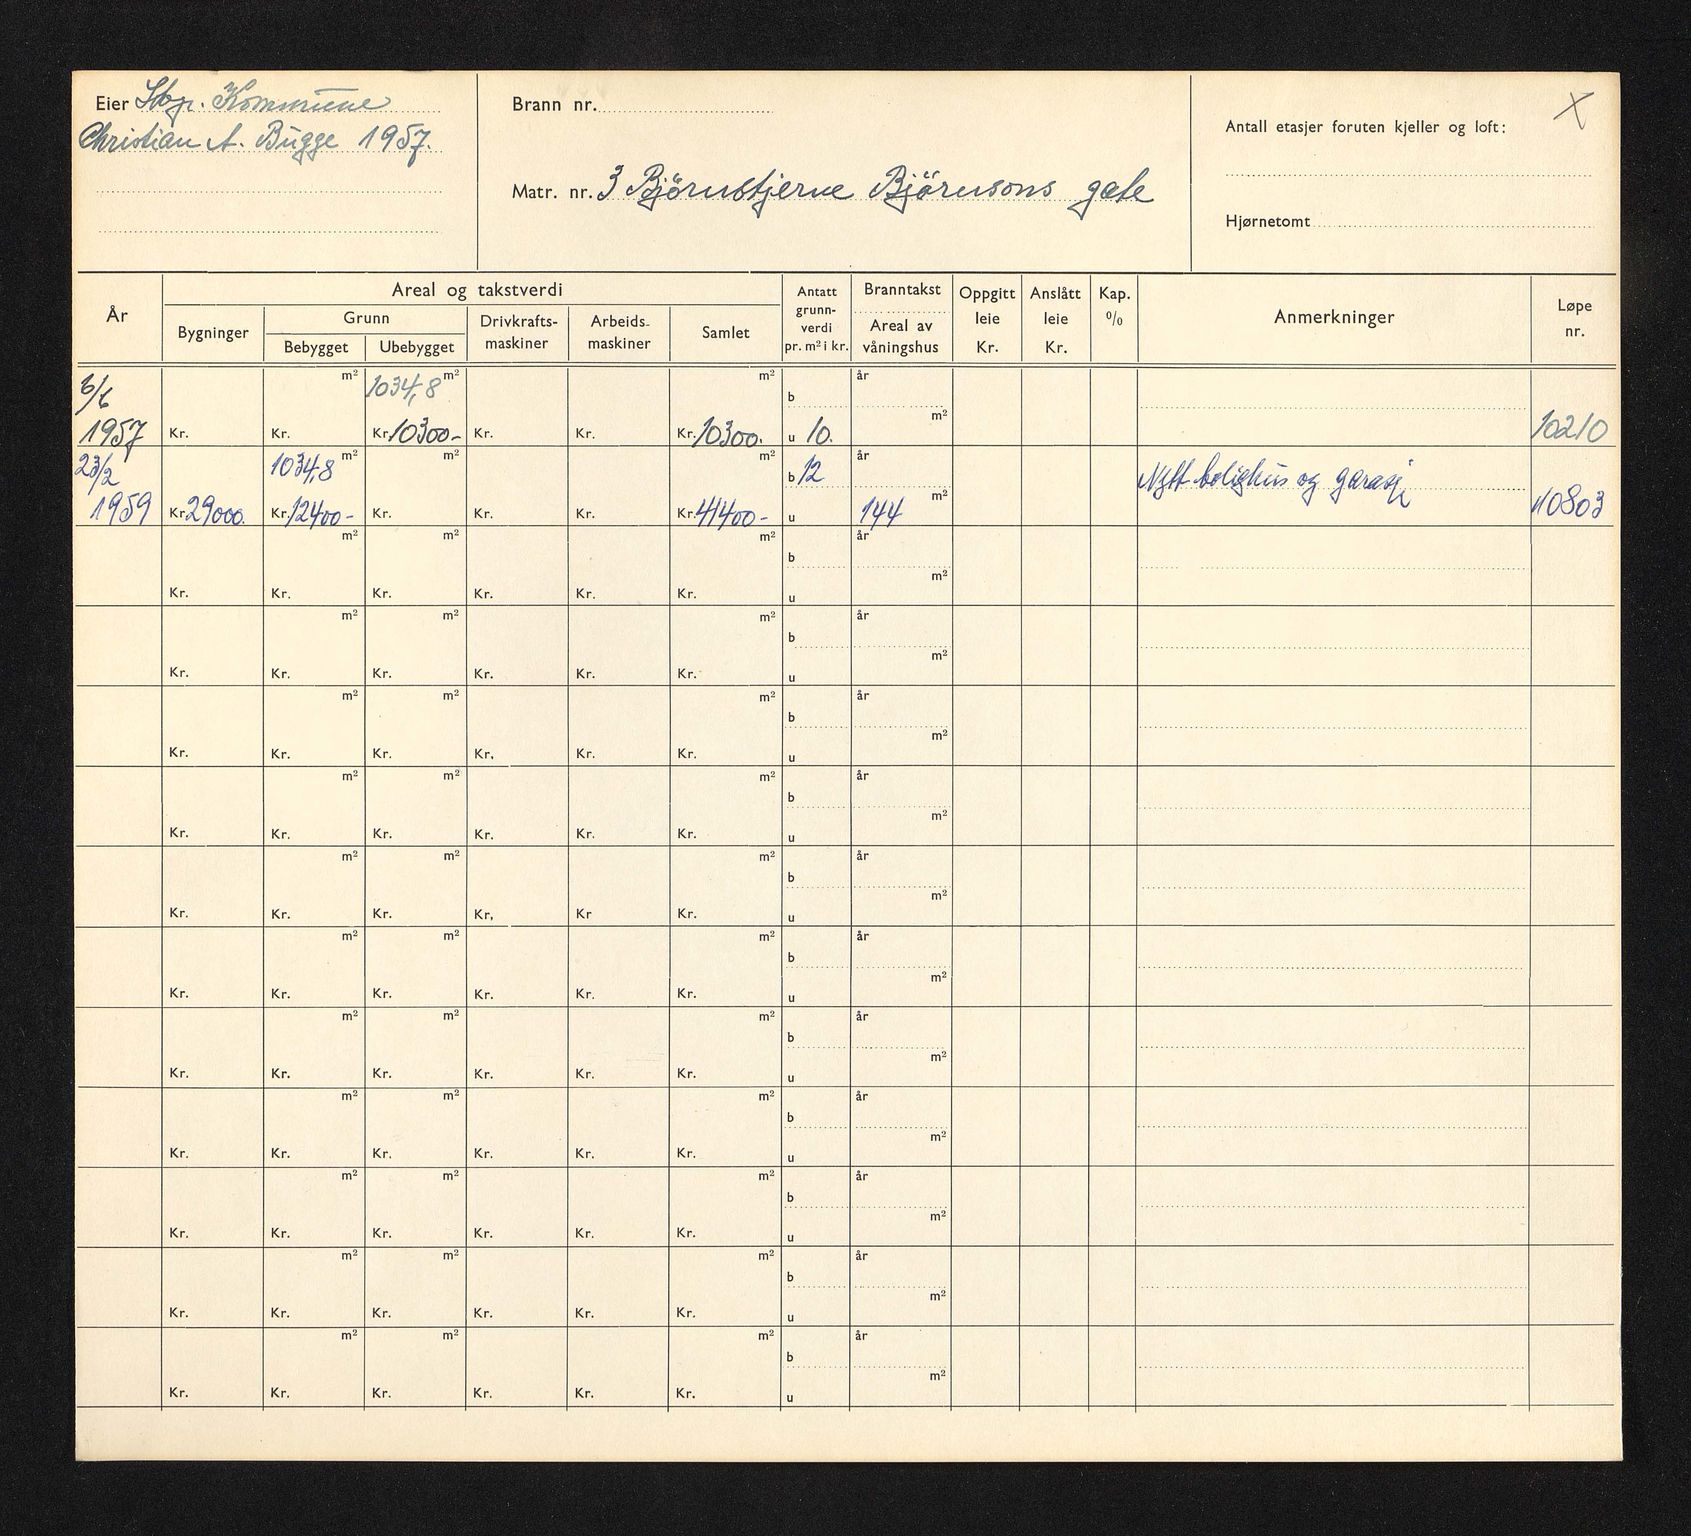 Eier Stvgr. Kommune
Christian A. Bugge 1957.
Brann nr.
Matr. nr. 3 Björnstjerne Björnsons gate
Antall etasjer foruten kjeller og loft:
X
Hjørnetomt
År
Areal og takstverdi
Bygninger
Grunn
Bebygget
Ubebygget
Drivkrafts-
maskiner
Arbeids-
maskiner
Samlet
Antatt
grunn-
verdi
pr. m² i kr.
Branntakst
Areal av
våningshus
Oppgitt
leie
Kr.
Anslått
leie
Kr.
Kap.
%
Anmerkninger
Løpe
nr.
m² 1034,8 m² m² b år
6/6
1957 Kr. Kr. Kr. 10300- Kr. Kr. Kr. 10300. u 10. m² 10210
23/2 1034,8 m² m² m² b 12 år Nytt bolighus og garasje
1959 Kr. 29000. Kr. 12400- Kr. Kr. Kr. Kr. 41400- u 144 m² 10803
m² m² m² b år
Kr. Kr. Kr. Kr. Kr. Kr. u m²
m² m² m² b år
Kr. Kr. Kr. Kr. Kr. Kr. u m²
m² m² m² b år
Kr. Kr. Kr. Kr. Kr. Kr. u m²
m² m² m² b år
Kr. Kr. Kr. Kr. Kr. Kr. u m²
m² m² m² b år
Kr. Kr. Kr. Kr, Kr Kr. u m²
m² m² m² b år
Kr. Kr. Kr. Kr. Kr. Kr. u m²
m² m² m² b år
Kr. Kr. Kr. Kr. Kr. Kr. u m²
m² m² m² b år
Kr. Kr. Kr. Kr. Kr. Kr. u m²
m² m² m² b år
Kr. Kr. Kr. Kr. Kr. Kr. u m²
m² m² m² b år
Kr. Kr. Kr. Kr. Kr. Kr. u m²
m² m² m² b år
Kr. Kr. Kr. Kr. Kr. Kr. u m²